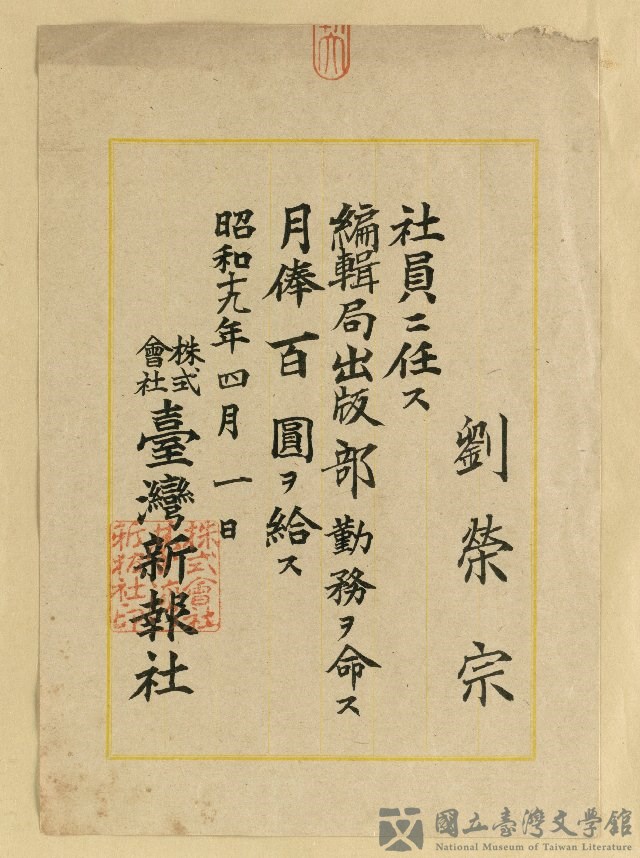 劉榮宗
社員ニ任ス
編輯局出版部勤務ヲ命ス
月俸百圓ヲ給ス
昭和十九年四月一日
株式會社臺灣新報社
株式會社
新報社印
國立臺灣文學館
National Museum of Taiwan Literature